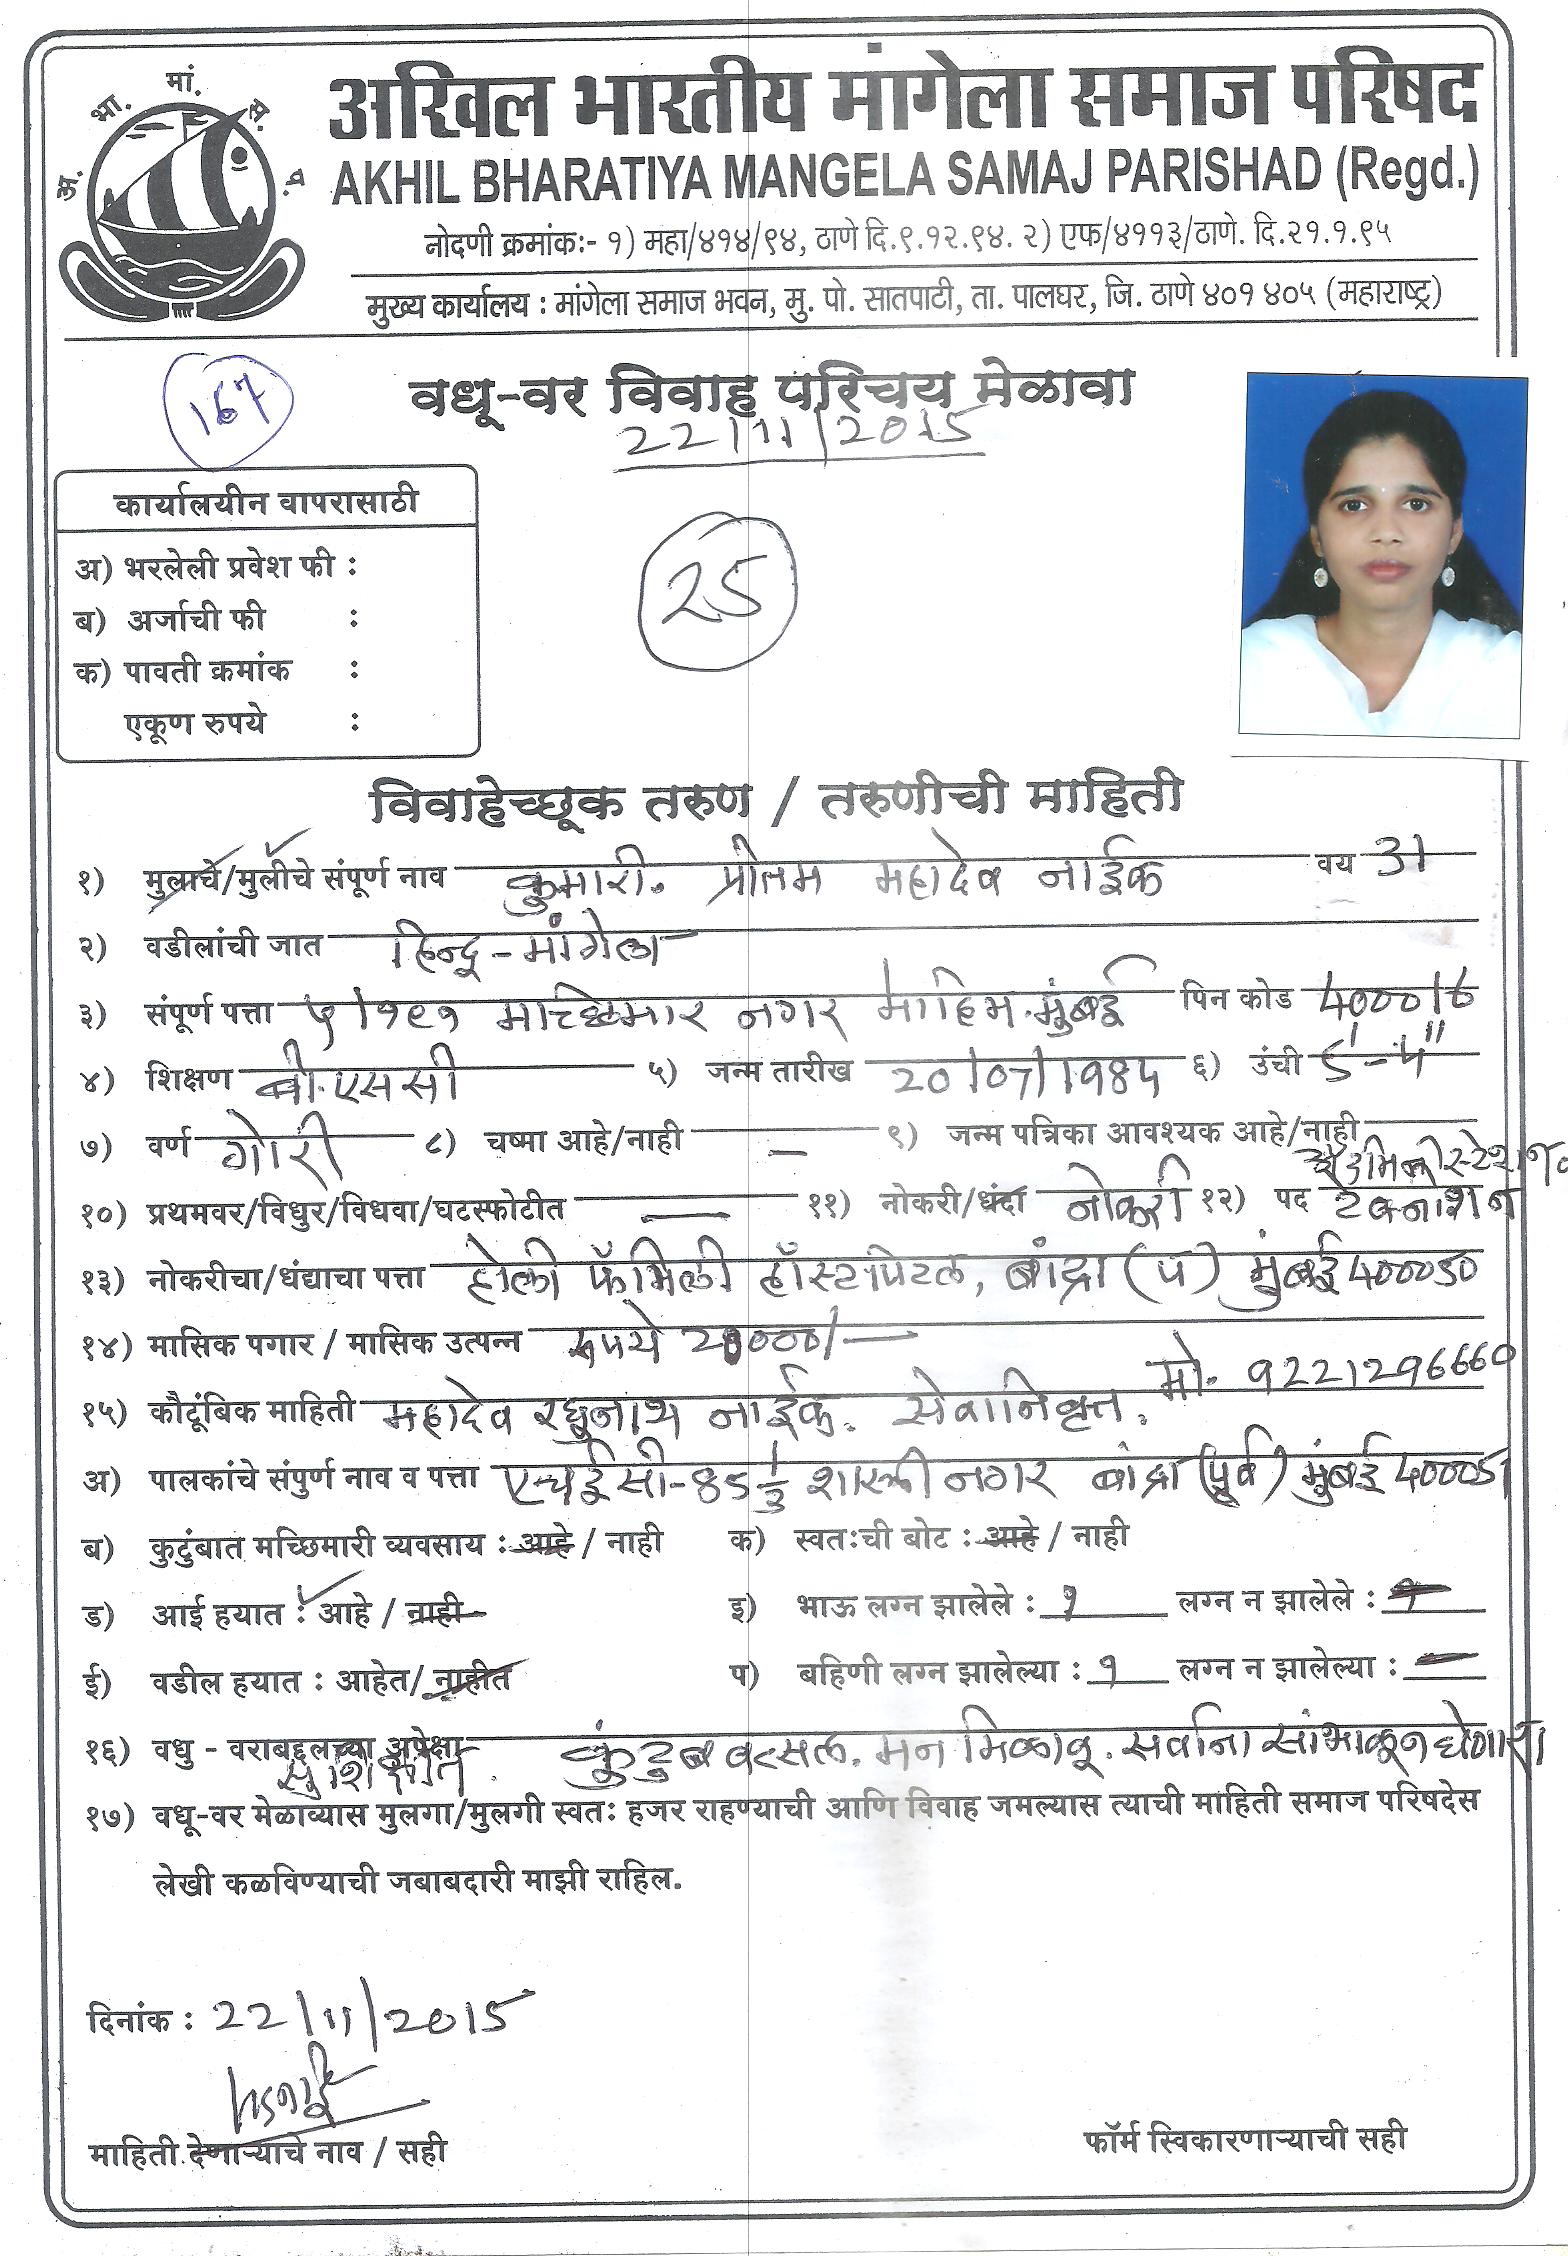 अ. भा. मां. स. प.
अखिल भारतीय मांगेला समाज परिषद
AKHIL BHARATIYA MANGELA SAMAJ PARISHAD (Regd.)
नोदणी क्रमांकः- १) महा/४१४/९४, ठाणे दि.९.१२.९४. २) एफ/४११३/ठाणे. दि.२१.१.९५
मुख्य कार्यालय : मांगेला समाज भवन, मु. पो. सातपाटी, ता. पालघर, जि. ठाणे ४०१ ४०५ (महाराष्ट्र)
167
वधू-वर विवाह परिचय मेळावा
22/11/2015
कार्यालयीन वापरासाठी
अ) भरलेली प्रवेश फी :
ब) अर्जाची फी :
क) पावती क्रमांक :
एकूण रुपये :
25
विवाहेच्छूक तरुण / तरुणीची माहिती
१) मुलाचे/मुलीचे संपूर्ण नाव कुमारी. प्रीतम महादेव नाईक वय 31
२) वडीलांची जात हिन्दू - मांगेला
३) संपूर्ण पत्ता ५/१९१ माच्छिमार नगर माहिम. मुंबई पिन कोड 400016
४) शिक्षण बी.एससी ५) जन्म तारीख 20/07/1984 ६) उंची 5'-५"
७) वर्ण गोरी ८) चष्मा आहे/नाही – ९) जन्म पत्रिका आवश्यक आहे/नाही
१०) प्रथमवर/विधुर/विधवा/घटस्फोटीत — ११) नोकरी/धंदा नोकरी १२) पद
१३) नोकरीचा/धंद्याचा पत्ता होली फॅमिली हॉस्टपिटल, बांद्रा (प) मुंबई 400050
१४) मासिक पगार / मासिक उत्पन्न रुपये 20000/—
मो. 9221296660
१५) कौटूंबिक माहिती महादेव रघुनाथ नाईक. सेवानिवृत्त.
अ) पालकांचे संपुर्ण नाव व पत्ता एचईसी-85 1/3 शास्त्री नगर बांद्रा (पूर्व) मुंबई 400051
ब) कुटुंबात मच्छिमारी व्यवसाय : आहे / नाही क) स्वतःची बोट : आहे / नाही
ड) आई हयात : आहे / नाही इ) भाऊ लग्न झालेले : १ लग्न न झालेले :
ई) वडील हयात : आहेत/ नाहीत प) बहिणी लग्न झालेल्या : १ लग्न न झालेल्या : —
१६) वधु - वराबद्दलच्या अपेक्षा कुंटुब वत्सल. मन मिळावू. सर्वांना सांभाळून घेणारा
सुशिक्षीत.
१७) वधू-वर मेळाव्यास मुलगा/मुलगी स्वतः हजर राहण्याची आणि विवाह जमल्यास त्याची माहिती समाज परिषदेस
लेखी कळविण्याची जबाबदारी माझी राहिल.
दिनांक : 22/11/2015
माहिती देणाऱ्याचे नाव / सही
फॉर्म स्विकारणाऱ्याची सही